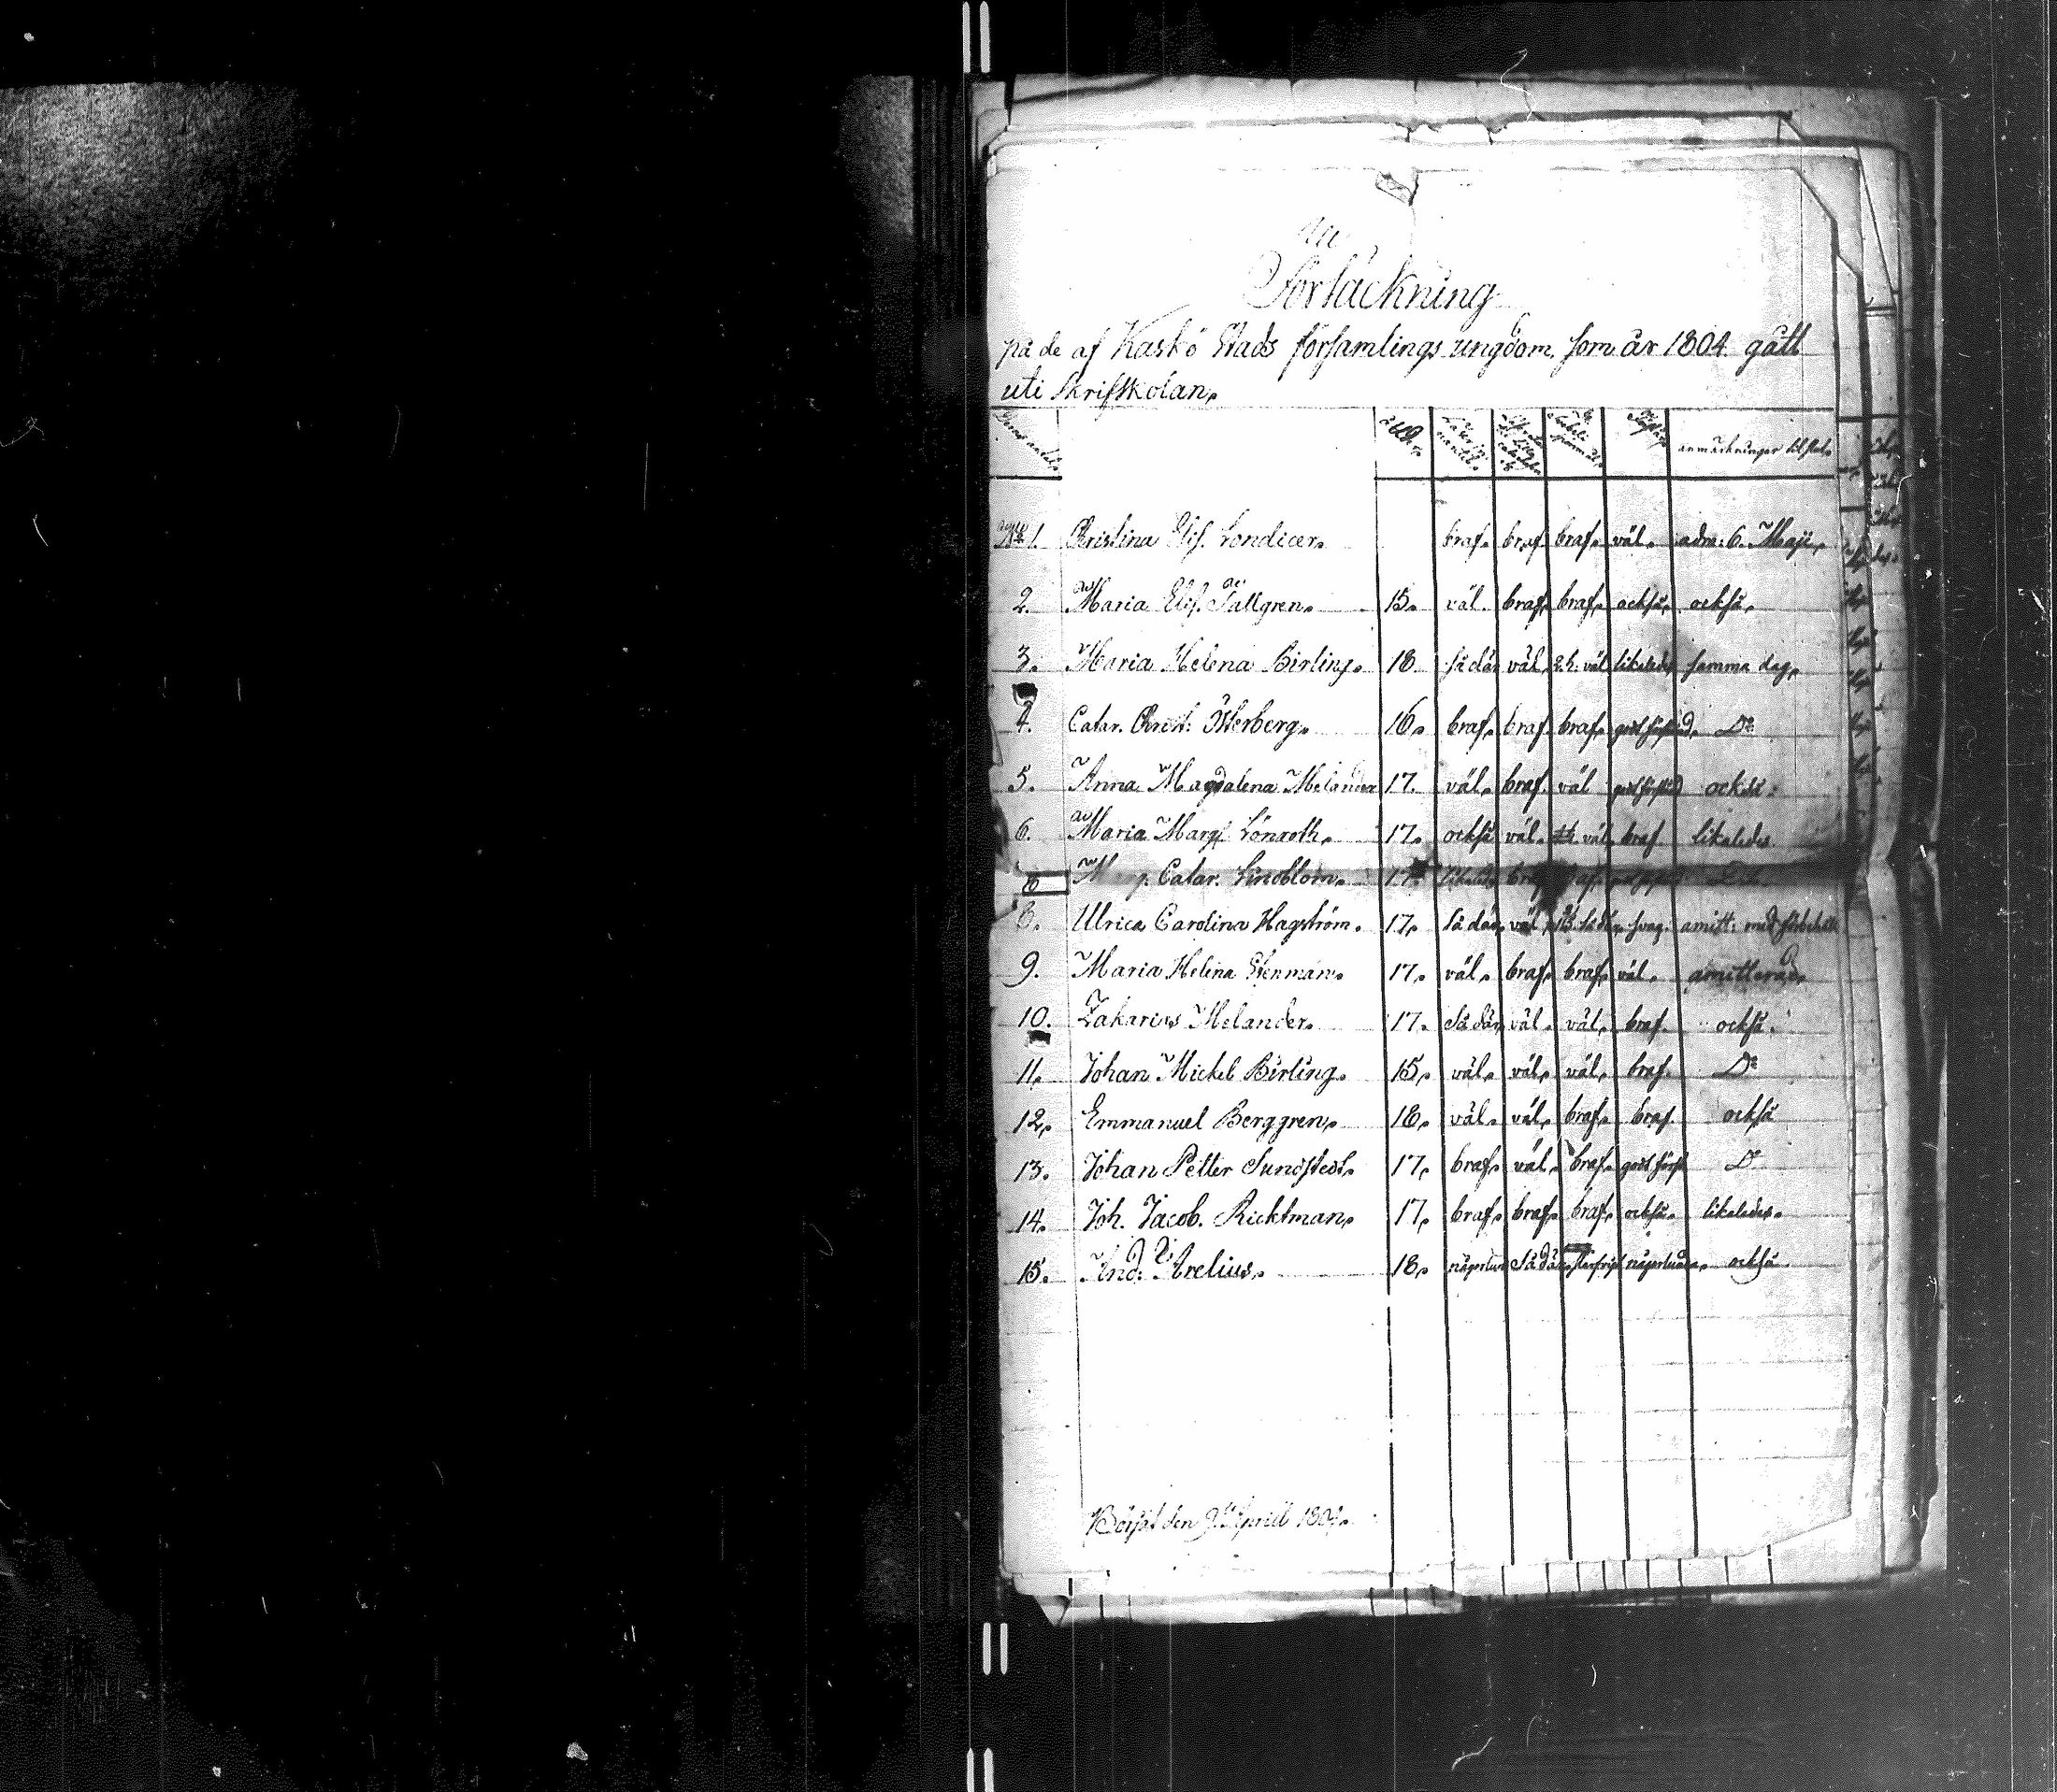 Förtäckning
på de af Kaskö Stads församlings ungdom, som år 1804 gått
uti Skriftskolan.
Deras antal. anmärkningar
1. Christina Elis. Londicer. braf. braf. braf. väl. adm: 6. Maji.
2. Maria Elis. Tällgren. 15. väl. braf. braf. också, också,
3. Maria Helena Birling. 18. så där väl. väl likaledes samma dag,
4. Catar. Christ: Österberg. 16. braf. braf. braf. godt förstånd. Do
5. Anna Magdalena Melandra 17. väl. braf. väl godt förstånd också.
6. Maria Marg. Lönroth. 17. också väl. väl. braf likaledes
Marg. Catar. Lindblom. 17. likaledes braf
8. Ulrica Carolina Hagström. 17. så där väl. så där svag. amitt: med
9. Maria Helena Stenman. 17. väl. braf. braf. väl. amitterad.
10. Zakarias Melander. 17. så där väl. väl. braf. också.
11. Johan Mickel Birling. 15. väl. väl. väl. braf. Do
12. Emmanuel Berggren. 18. väl. väl. braf. braf. också
13. Johan Petter Sundstedt. 17. braf. väl. braf. godt först Do
14. Joh. Jacob. Ricktman. 17. braf. braf. braf. också. likaledes.
15. And: Arelius. 18. någorlunda så där någorlunda. också.
Börjat den 9 Aprill 1804.